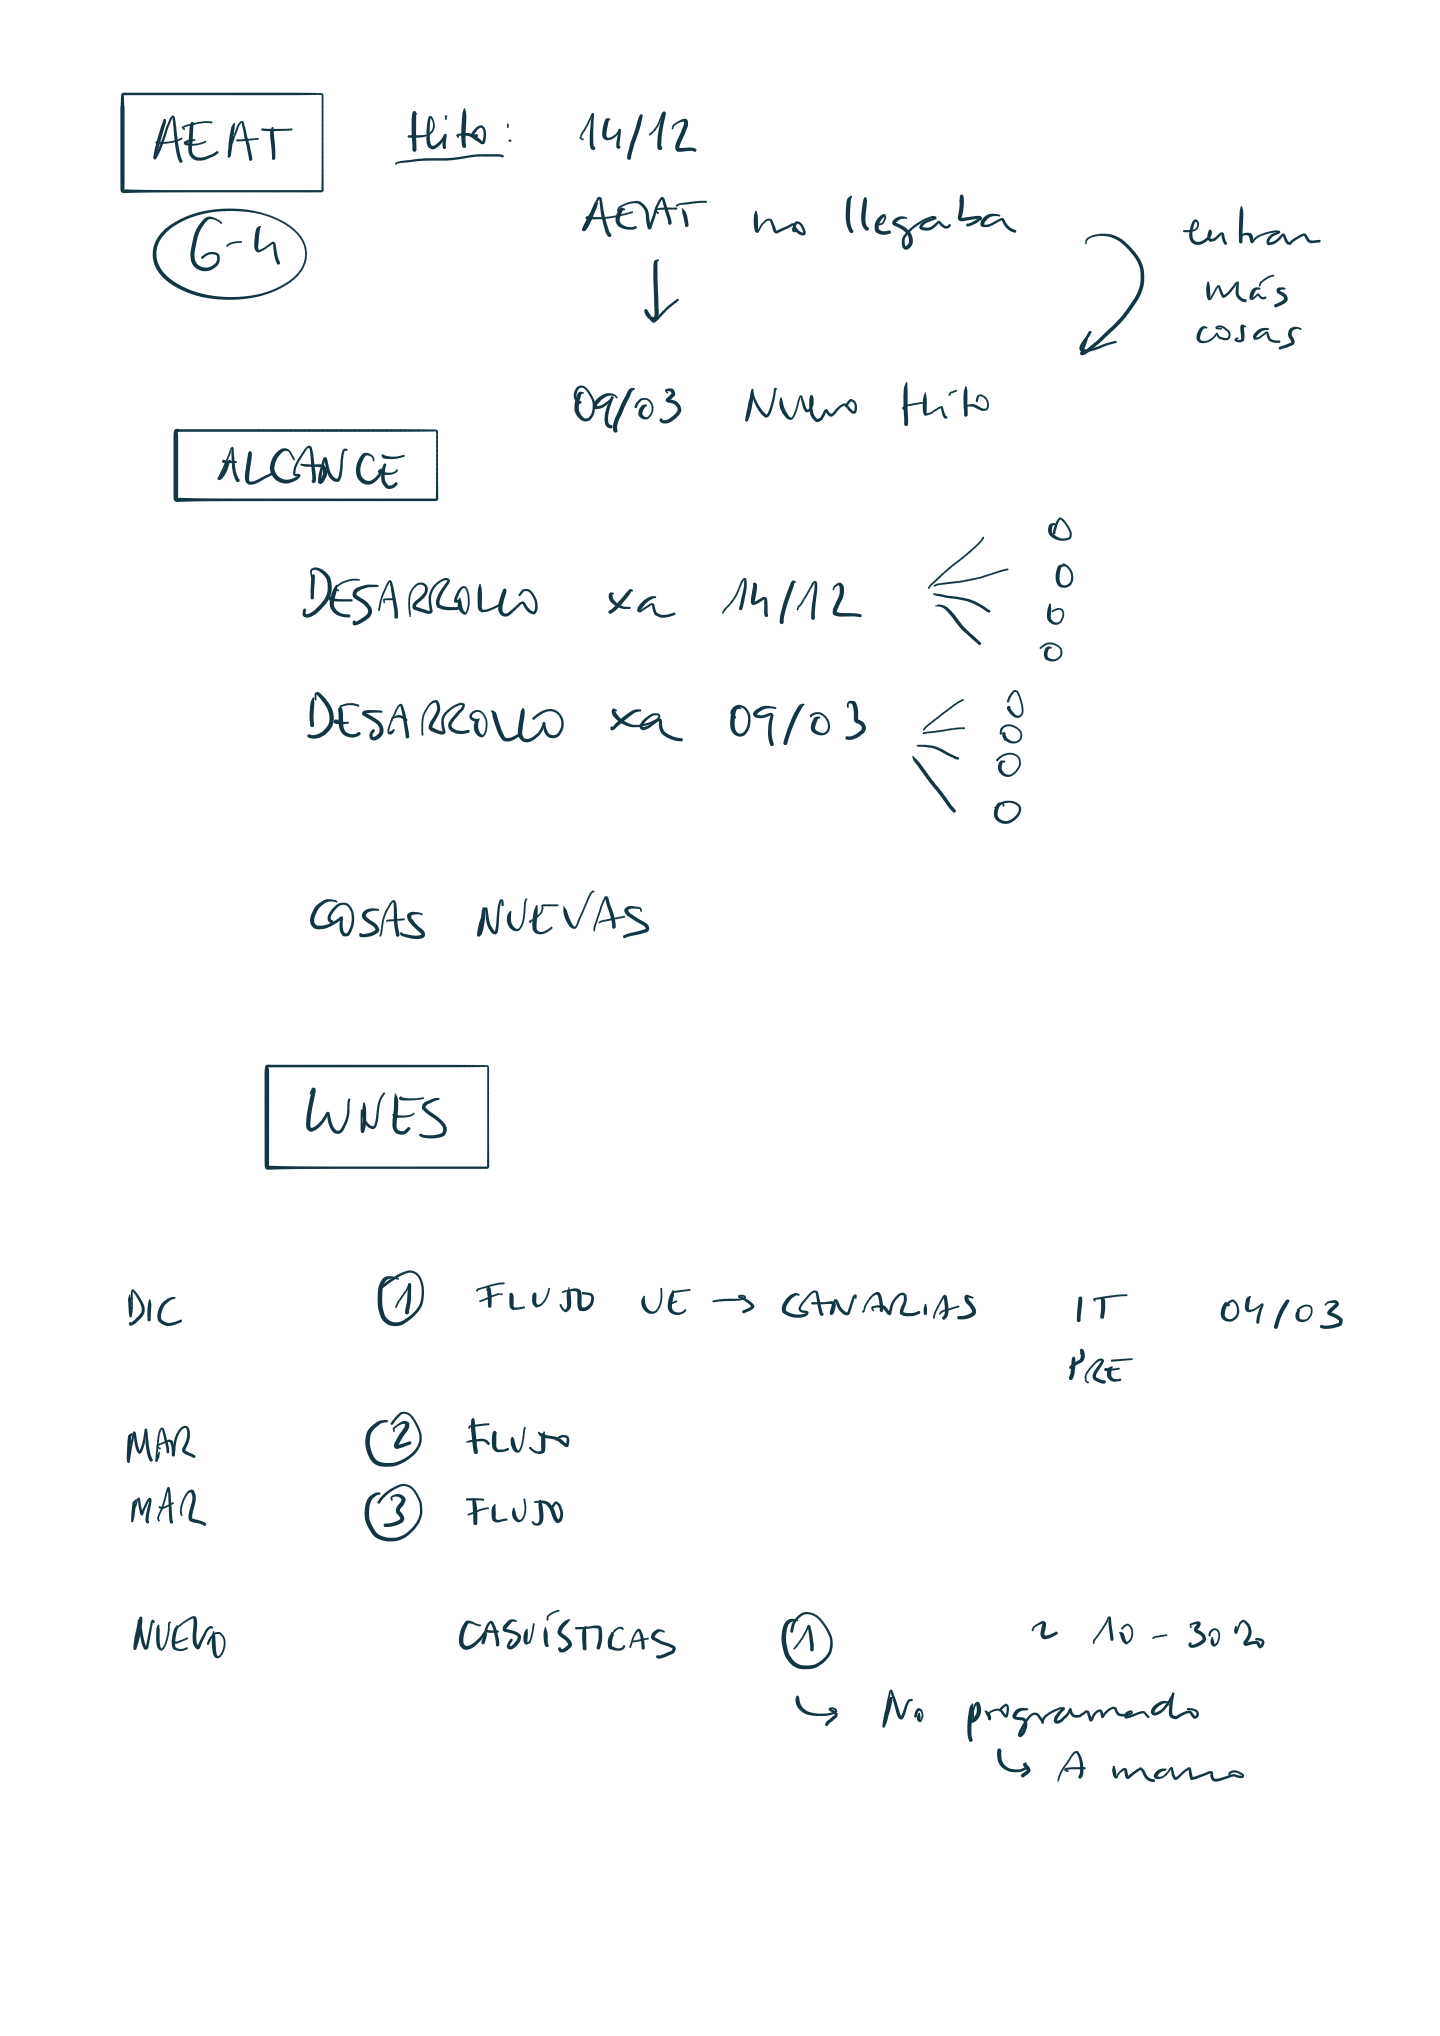 AEAT Hito: 14/12
G-4 AEAT no llegaba entran
más
cosas
09/03 Nuevo Hito
ALCANCE
DESARROLLO xa 14/12
DESARROLLO xa 09/03
COSAS NUEVAS
LUNES
DIC 1 FLUJO UE → CANARIAS IT 04/03
PRE
MAR 2 FLUJO
MAR 3 FLUJO
NUEVO CASUÍSTICAS 1 ~ 10-30%
↳ No programado
↳ A mano